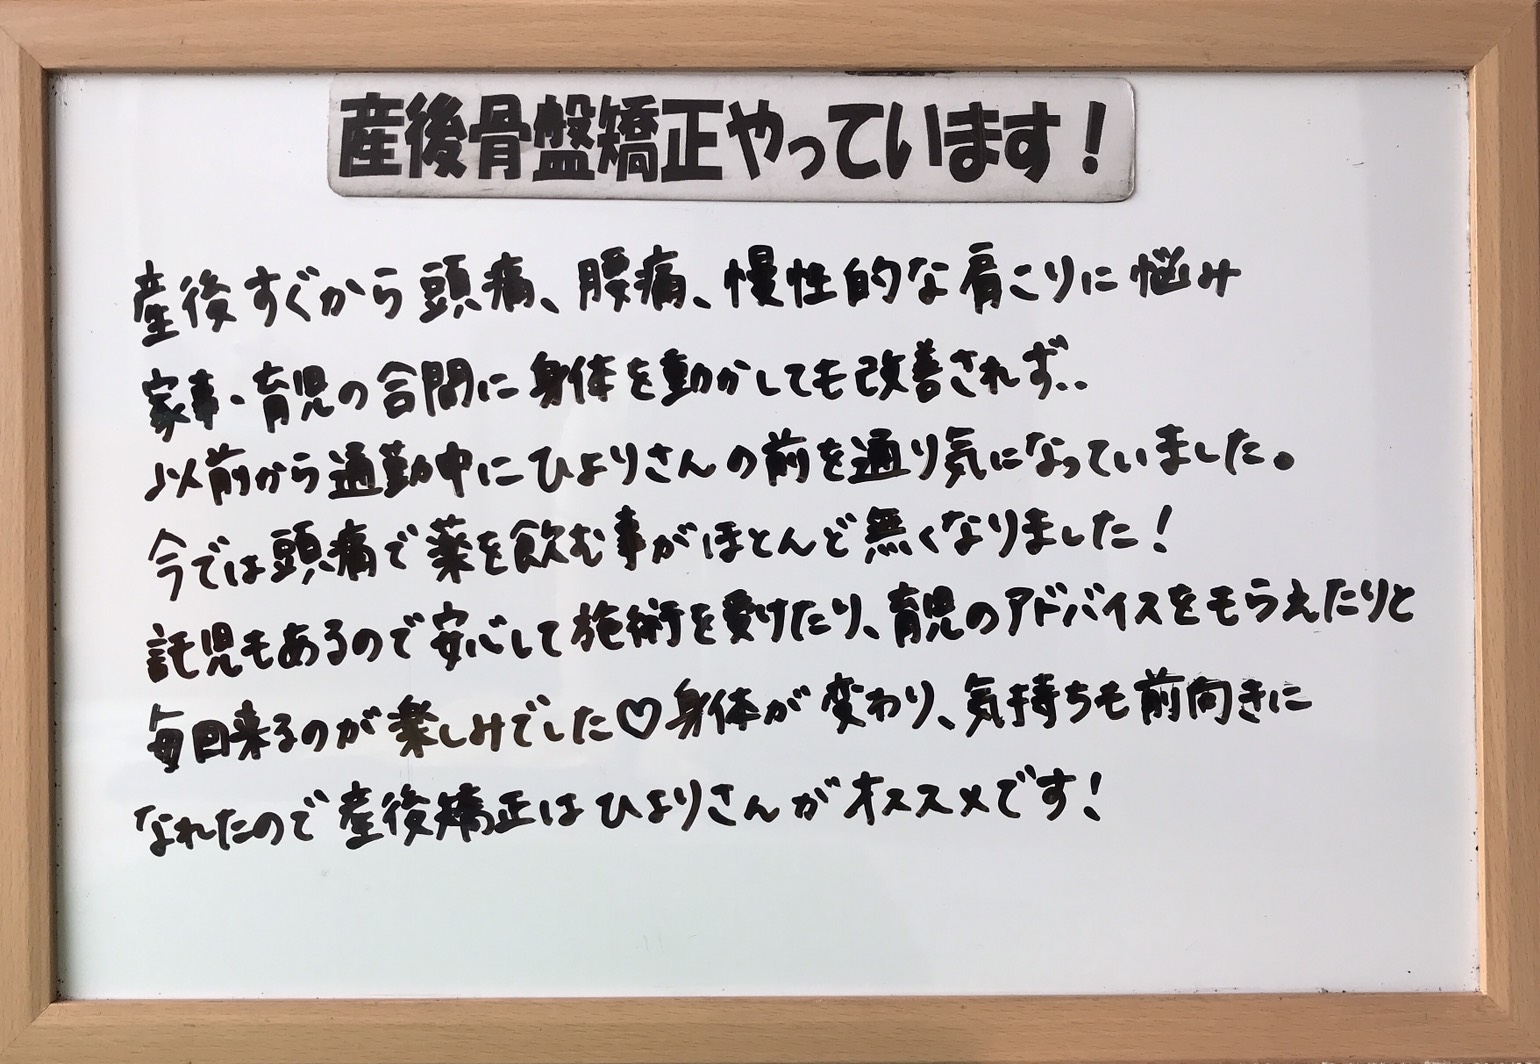 産後骨盤矯正やっています！
産後すぐから頭痛、腰痛、慢性的な肩こりに悩み
家事・育児の合間に身体を動かしても改善されず‥
以前から通勤中にひよりさんの前を通り気になっていました。
今では頭痛で薬を飲む事がほとんど無くなりました！
託児もあるので安心して施術を受けたり、育児のアドバイスをもらえたりと
毎回来るのが楽しみでした♡身体が変わり、気持ちも前向きに
なれたので産後矯正はひよりさんがオススメです！